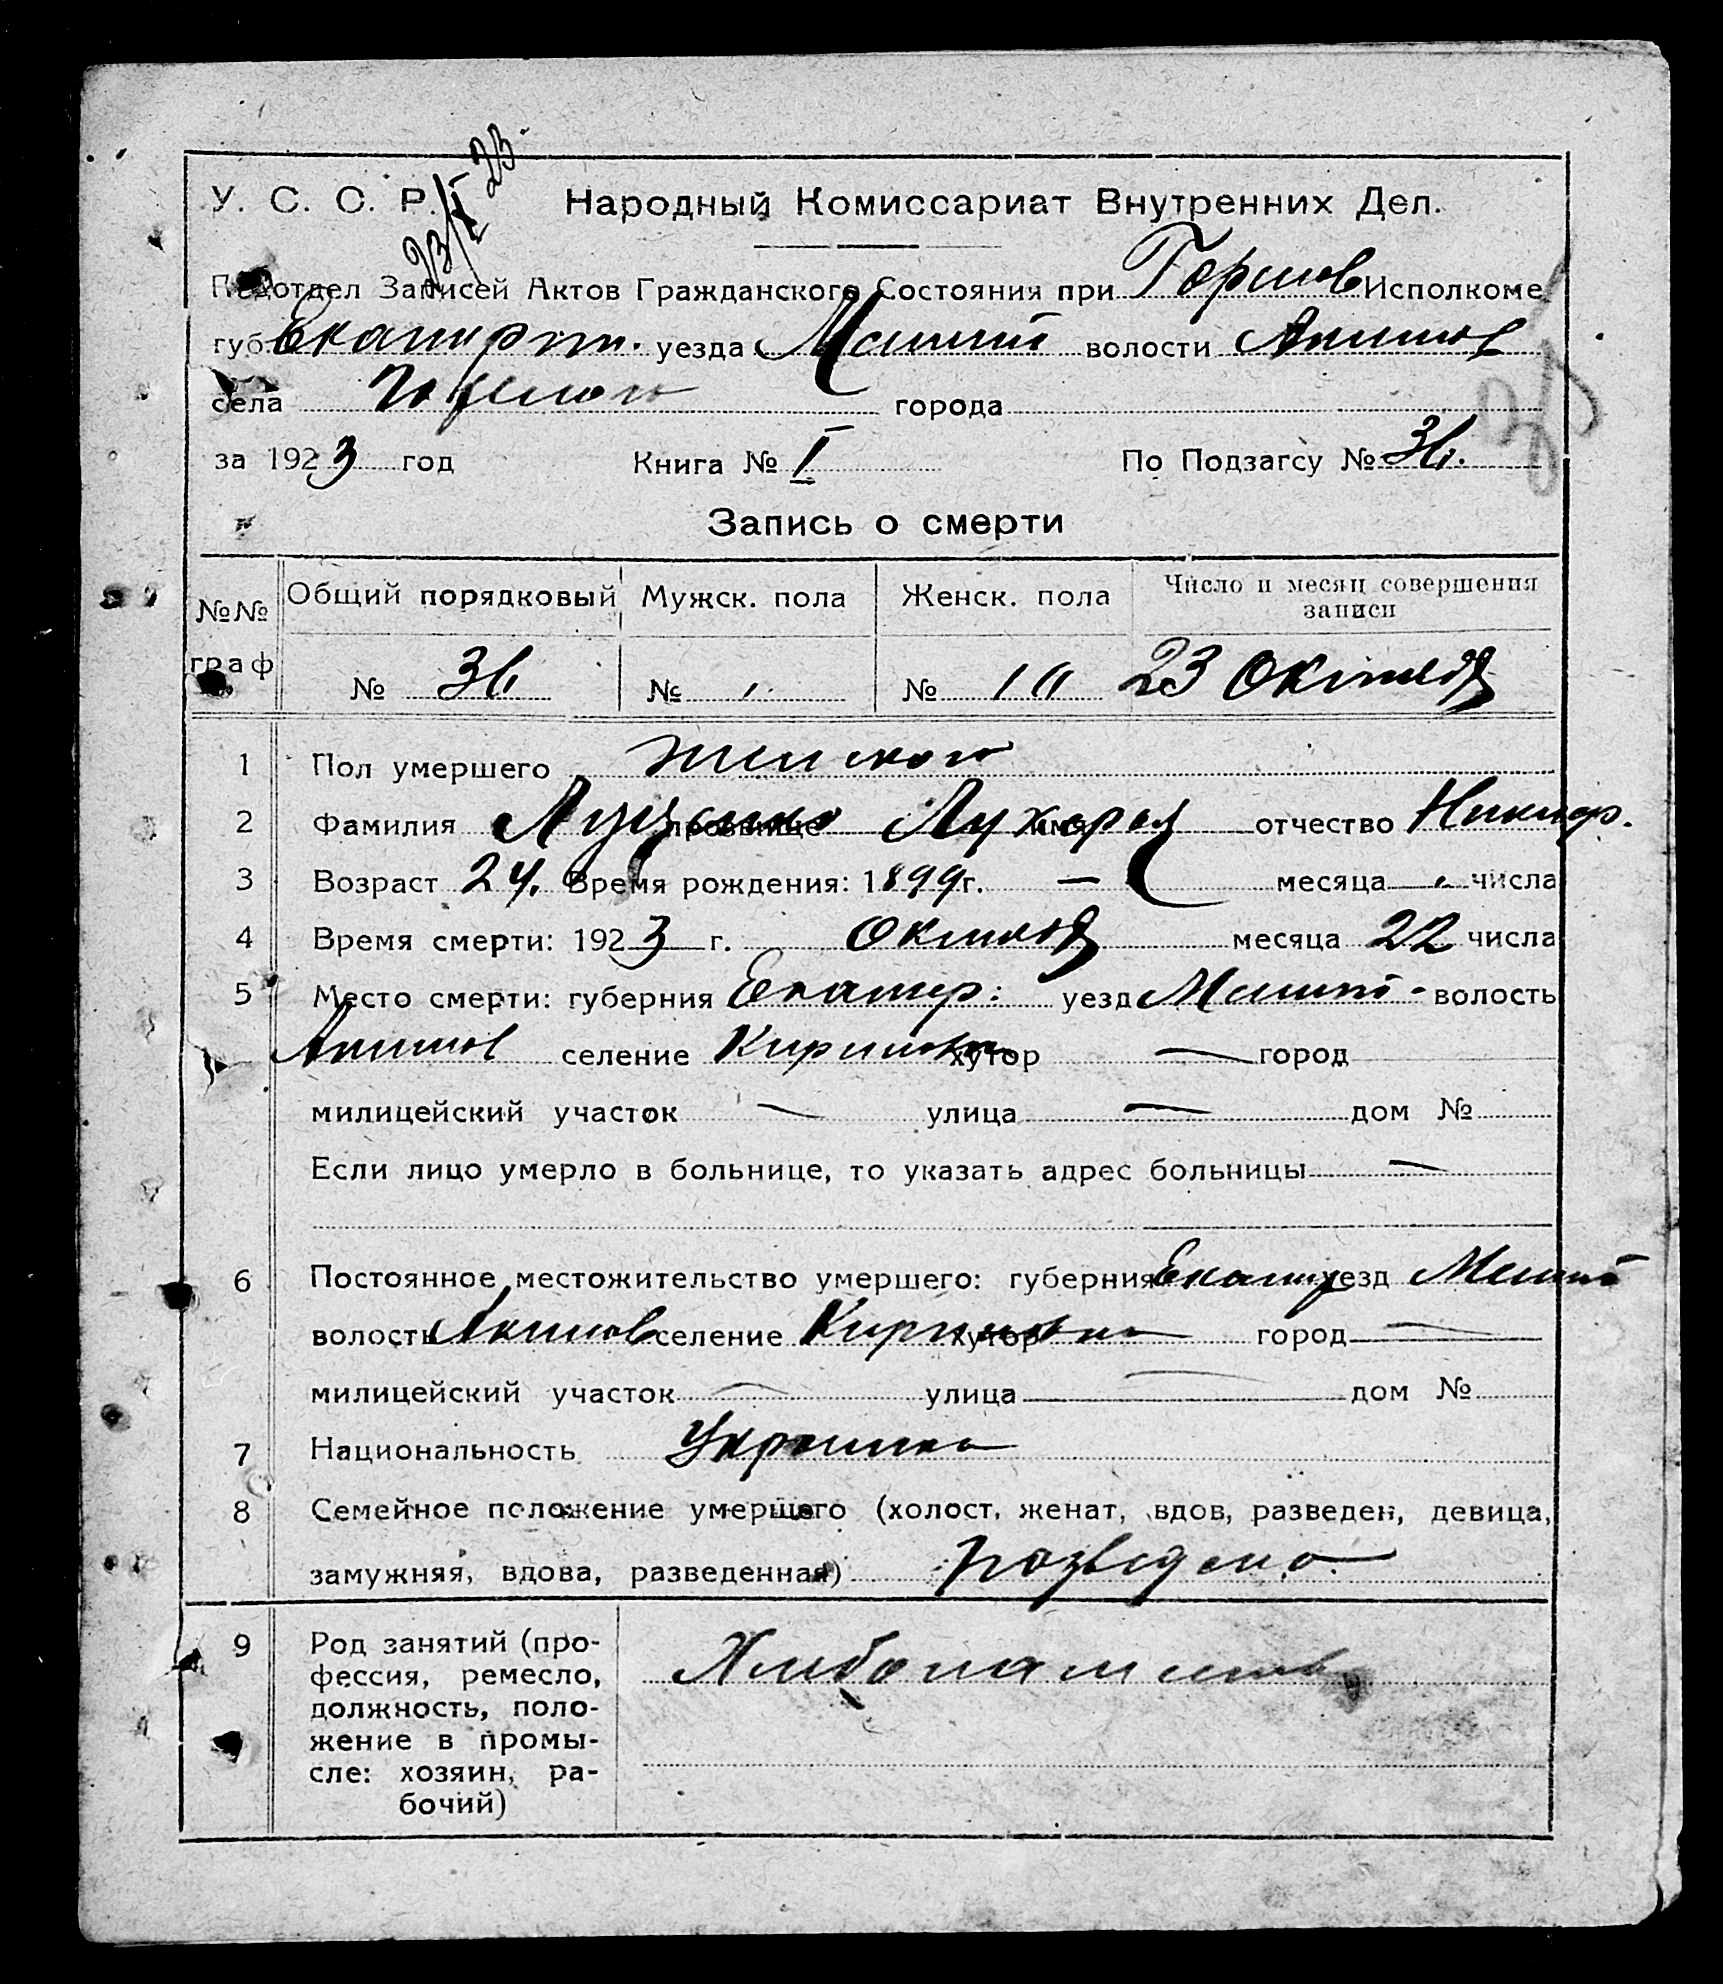 23/X 23.
У. С. С. Р. Народный Комиссариат Внутренних Дел.
Подотдел Записей Актов Гражданского Состояния при Исполкоме
губ. уезда волости Акимов
села города
за 1923 год Книга № I По Подзагсу № 36.
Запись о смерти
№№ граф Общий порядковый Мужск. пола Женск. пола Число и месяц совершения записи
№ 36 № № 23 Октября
1 Пол умершего женского
2 Фамилия Луценко прозвище имя отчество Никифр.
3 Возраст 24. Время рождения: 1899г. — месяца числа
4 Время смерти: 1923 г. Октября месяца 22 числа
5 Место смерти: губерния Екатер: уезд волость
Акимов селение Кириловка хутор — город
милицейский участок — улица — дом №
Если лицо умерло в больнице, то указать адрес больницы —
6 Постоянное местожительство умершего: губерния Екатер уезд
волость Акимов селение Кириловка хутор город —
милицейский участок — улица — дом №
7 Национальность Украинка
8 Семейное положение умершего (холост, женат, вдов, разведен, девица,
замужняя, вдова, разведенная) разведена
9 Род занятий (про-
фессия, ремесло,
должность, поло-
жение в промы-
сле: хозяин, ра-
бочий)